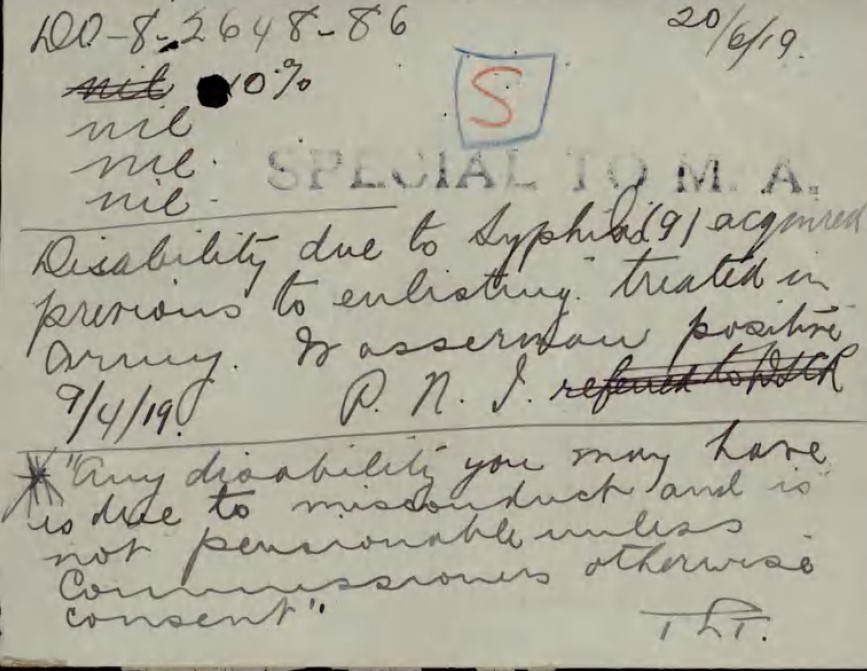 DO-8-2648-86
20/6/19.
nil 10%
S
nil
nil.
nil.
SPECIAL TO M. A.
Disability due to Syphilis (9) acquired
previous to enlisting. treated in
army. Wasserman positive
9/4/19. P. N. I. referred to DSCR
"Any disability you may have
is due to misconduct and is
not pensionable unless
Commissioners otherwise
consent".